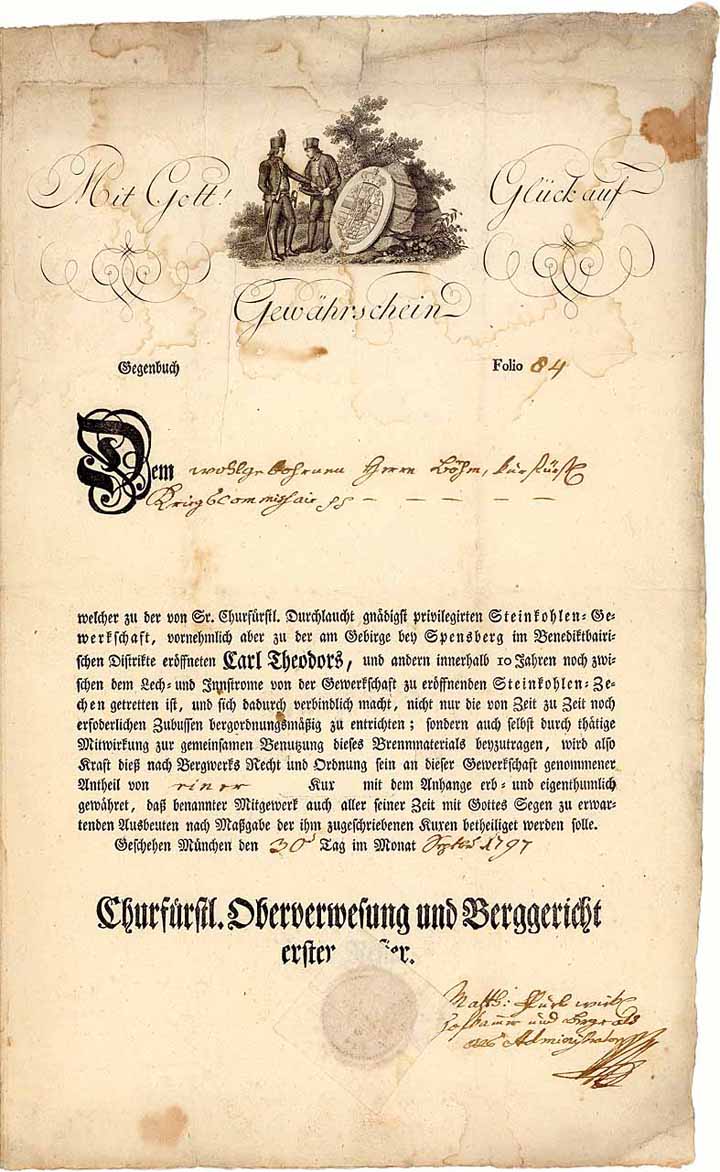 Mit Gott! Glück auf
Gewährschein
Gegenbuch Folio 84
Dem wohlgebohrnen Herrn Böhm, kurfürstl
Kriegscommissair
welcher zu der von Sr. Churfürstl. Durchlaucht gnädigst privilegirten Steinkohlen-Ge-
werkschaft, vornehmlich aber zu der am Gebirge bey Spensberg im Benediktbairi-
schen Distrikte eröffneten Carl Theodors, und andern innerhalb 10 Jahren noch zwi-
schen dem Lech- und Innstrome von der Gewerkschaft zu eröffnenden Steinkohlen-Ze-
chen getretten ist, und sich dadurch verbindlich macht, nicht nur die von Zeit zu Zeit noch
erforderlichen Zubussen bergordnungsmäßig zu entrichten; sondern auch selbst durch thätige
Mitwirkung zur gemeinsamen Benutzung dieses Brennmaterials beyzutragen, wird also
Kraft dieß nach Bergwerks Recht und Ordnung sein an dieser Gewerkschaft genommener
Antheil von einer Kux mit dem Anhange erb- und eigenthumlich
gewähret, daß benannter Mitgewerk auch aller seiner Zeit mit Gottes Segen zu erwar-
tenden Ausbeuten nach Maßgabe der ihm zugeschriebenen Kuxen betheiliget werden solle.
Geschehen München den 30 Tag im Monat 1797
Churfürstl. Oberverwesung und Berggericht
erster
Matth:
und
als Administrator